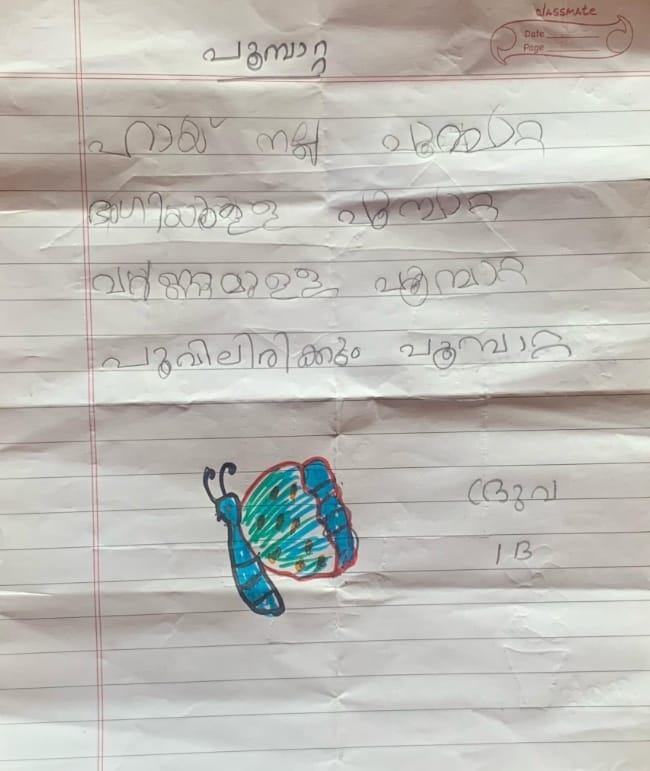 classmate
Date
Page
പൂമ്പാറ്റ
ഹായ് നല്ല പൂമ്പാറ്റ
ഭംഗിയുള്ള പൂമ്പാറ്റ
വർണ്ണമുള്ള പൂമ്പാറ്റ
പൂവിലിരിക്കും പൂമ്പാറ്റ
ധ്രുവ
1 B